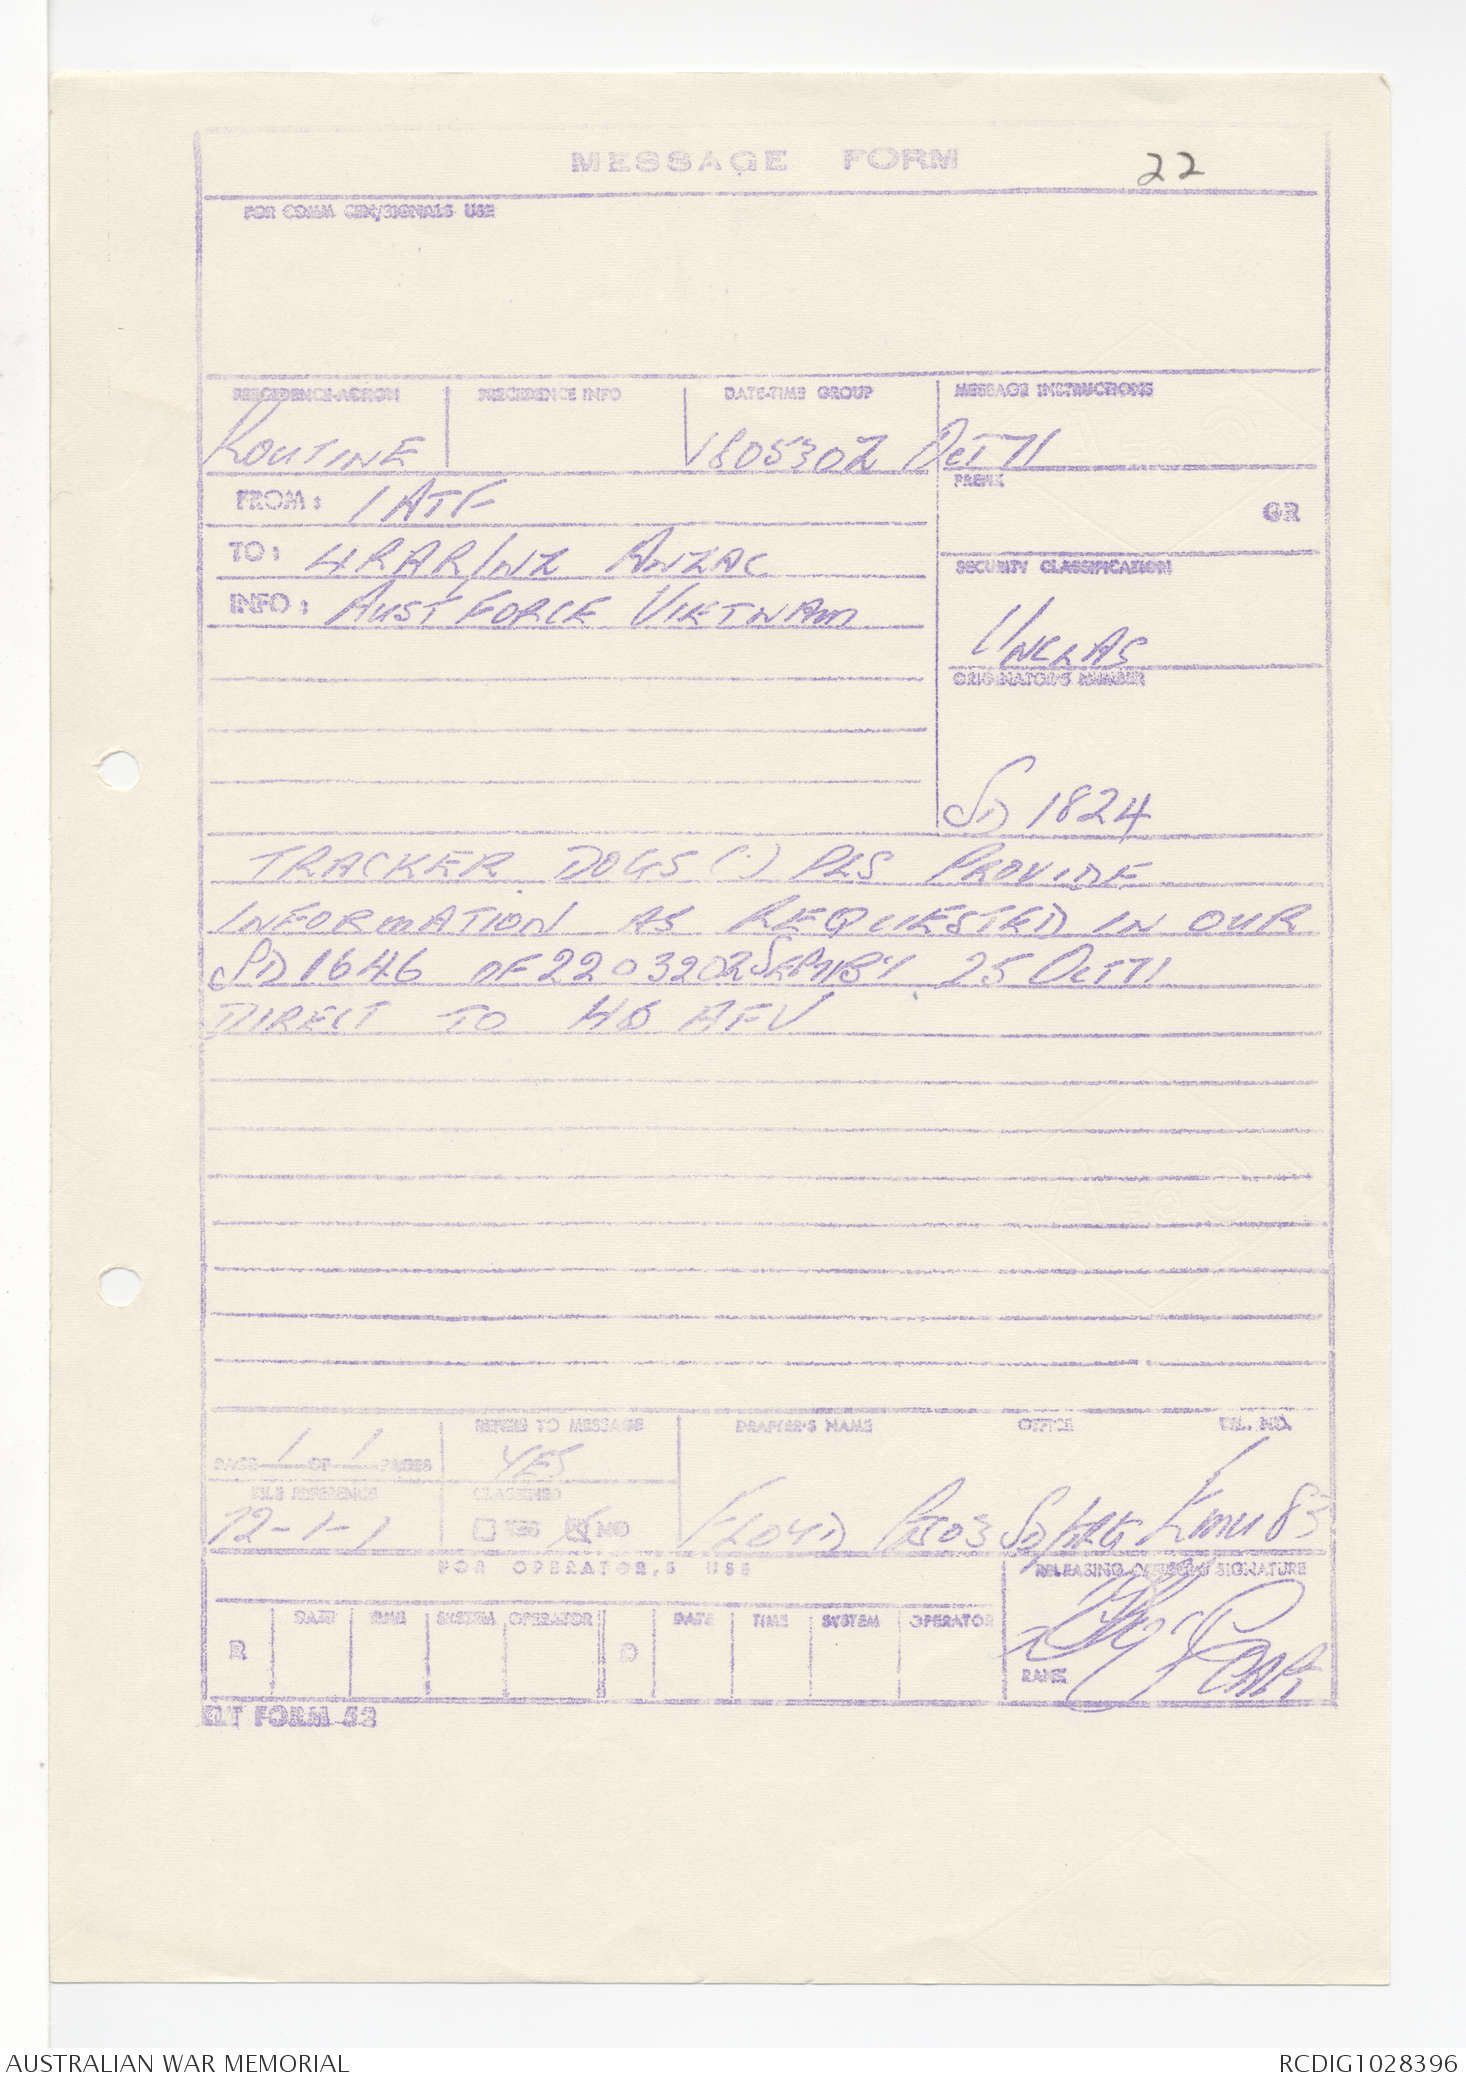 MESSAGE FORM
22
FOR COMM CEN/SIGNALS USE
PRECEDENCE-ACTION PRECEDENCE INFO DATE-TIME GROUP MESSAGE INSTRUCTIONS
ROUTINE 180530Z OCT 71
PREFIX
GR
FROM: 1 ATF
TO: 4 RAR/NZ ANZAC
SECURITY CLASSIFICATION
INFO: AUST FORCE VIETNAM
UNCLAS
ORIGINATOR'S NUMBER
SD 1824
TRACKER DOGS (.) PLS PROVIDE
INFORMATION AS REQUESTED IN OUR
SD 1646 OF 220320Z SEP 71 BY 25 OCT 71
DIRECT TO HQ AFV
PAGE 1 OF 1 PAGES
REFERS TO MESSAGE
YES
DRAFTER'S NAME OFFICE TEL. NO.
FILE REFERENCE
72-1-1
CLASSIFIED
YES NO
FLOYD 83
FOR OPERATOR,S USE
RELEASING OFFICER'S SIGNATURE
R DATE TIME SYSTEM OPERATOR D DATE TIME SYSTEM OPERATOR
RANK
FORM 52
AUSTRALIAN WAR MEMORIAL
RCDIG1028396